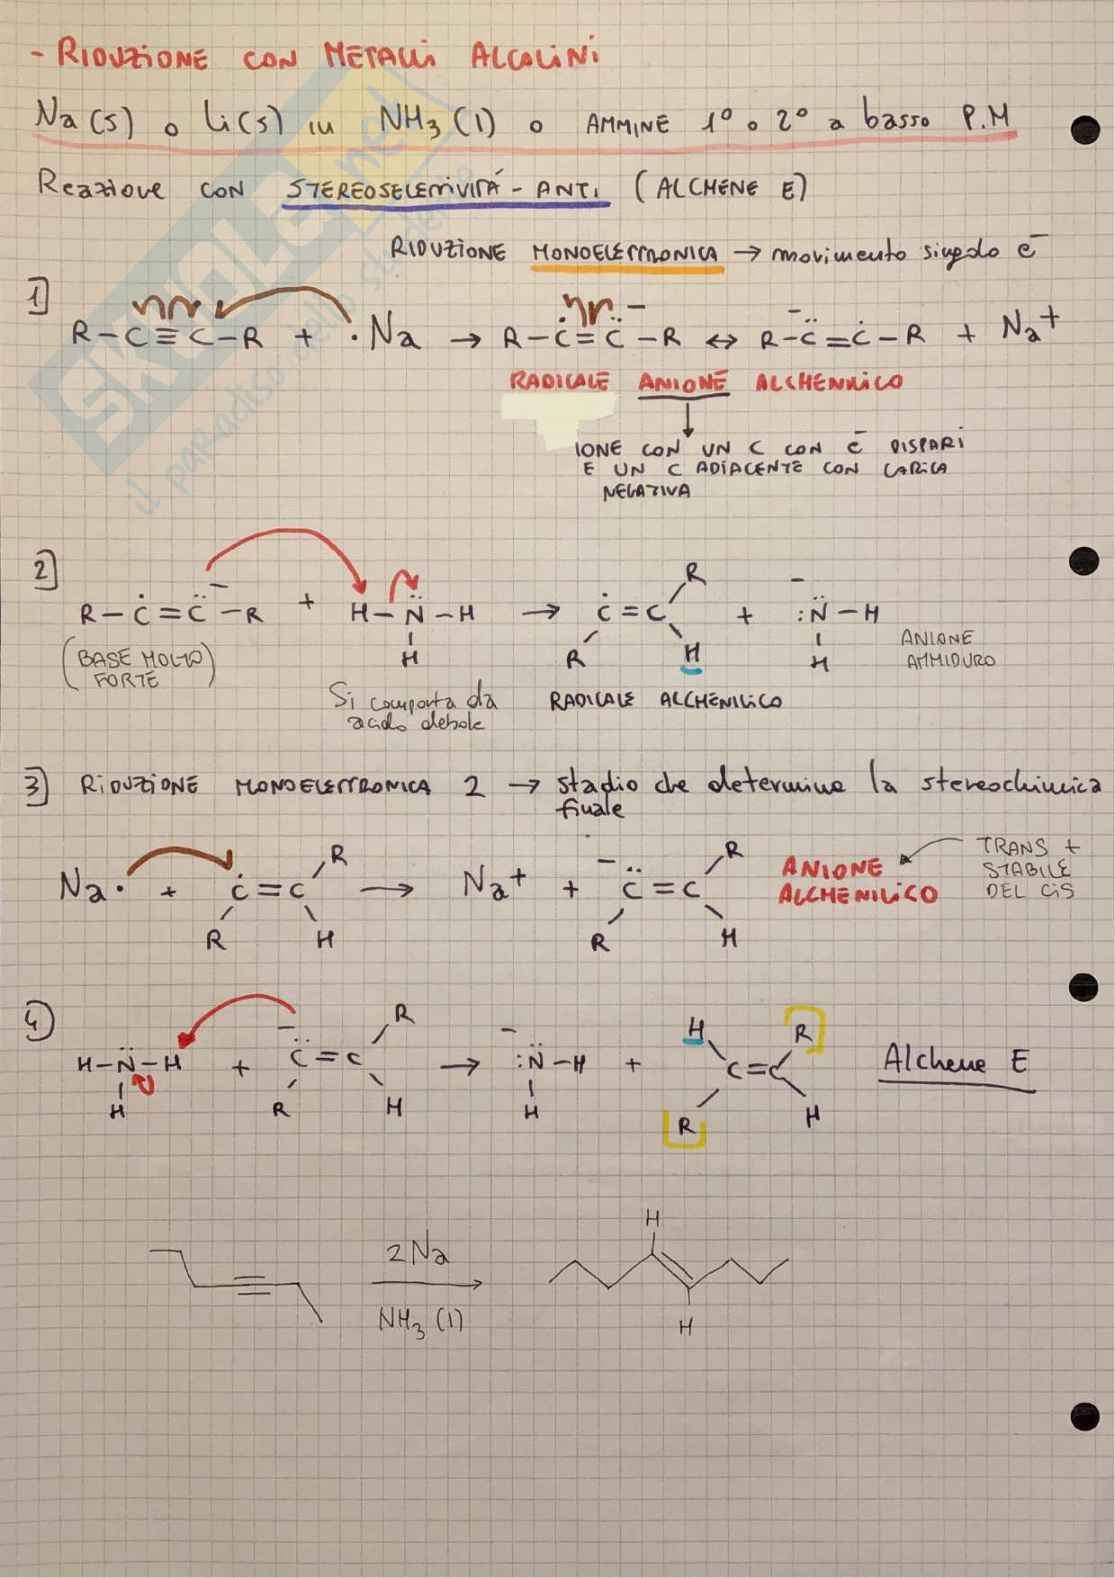 - RIDUZIONE CON METALLI ALCALINI
Na(s) o Li(s) in NH3(l) o AMMINE 1° o 2° a basso P.M
Reazione CON STEREOSELETTIVITÀ-ANTI (ALCHENE E)
RIDUZIONE MONOELETTRONICA → movimento singolo e⁻
1]
R-C≡C-R + ·Na → R-Ċ=C̈⁻-R ↔ R-C̈⁻=Ċ-R + Na+
RADICALE ANIONE ALCHENILICO
IONE CON UN C CON e⁻ DISPARI
E UN C ADIACENTE CON CARICA
NEGATIVA
2]
R
R-Ċ=C̈⁻-R + H-N̈-H → Ċ=C + :N̈⁻-H
H R H H
(BASE MOLTO FORTE)
ANIONE AMMIDURO
Si comporta da acido debole
RADICALE ALCHENILICO
3] RIDUZIONE MONOELETTRONICA 2 → stadio che determina la stereochimica
finale
TRANS +
STABILE
DEL CIS
R R
Na· + Ċ=C → Na+ + C̈⁻=C ANIONE ALCHENILICO
R H R H
4]
R H R
H-N̈-H + C̈⁻=C → :N̈⁻-H + C=C Alchene E
H R H H R H
H
2Na
NH3(l)
H
SKUOLA.net
il paradiso dello studente